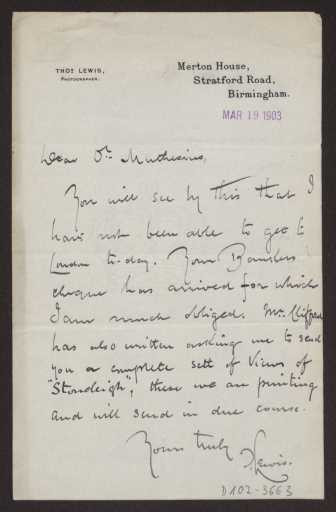 THOS. LEWIS,
PHOTOGRAPHER.
Merton House,
Stratford Road,
Birmingham.
MAR 19 1903
Dear Dr. Muthesius,
You will see by this that I
have not been able to get to
London to-day. Your Bankers
cheque has arrived for which
I am much obliged. Mr. Clifford
has also written asking me to send
you a complete sett of Views of
"Stoneleigh", these we are printing
and will send in due course.
Yours truly
TLewis.
D102-3663